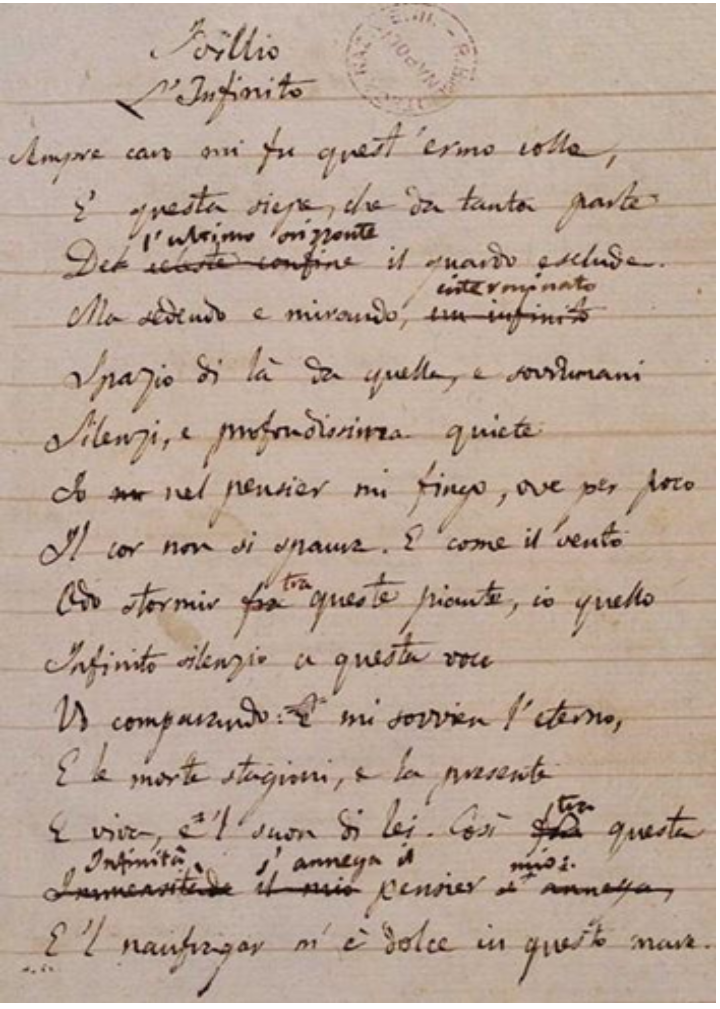 Idillio
L'Infinito
Sempre caro mi fu quest'ermo colle,
E questa siepe, che da tanta parte
l'ultimo orizzonte
Del celeste confine il guardo esclude.
interminato
Ma sedendo e mirando, un infinito
Spazio di là da quella, e sovrumani
Silenzi, e profondissima quiete
Io nel pensier mi fingo, ove per poco
Il cor non si spaura. E come il vento
tra
Odo stormir fra queste piante, io quello
Infinito silenzio a questa voce
Vo comparando: E mi sovvien l'eterno,
E le morte stagioni, e la presente
tra
E viva, e 'l suon di lei. Così fra questa
Infinità s'annega il mio:
Immensitade il mio pensier s'annega,
E 'l naufragar m'è dolce in questo mare.